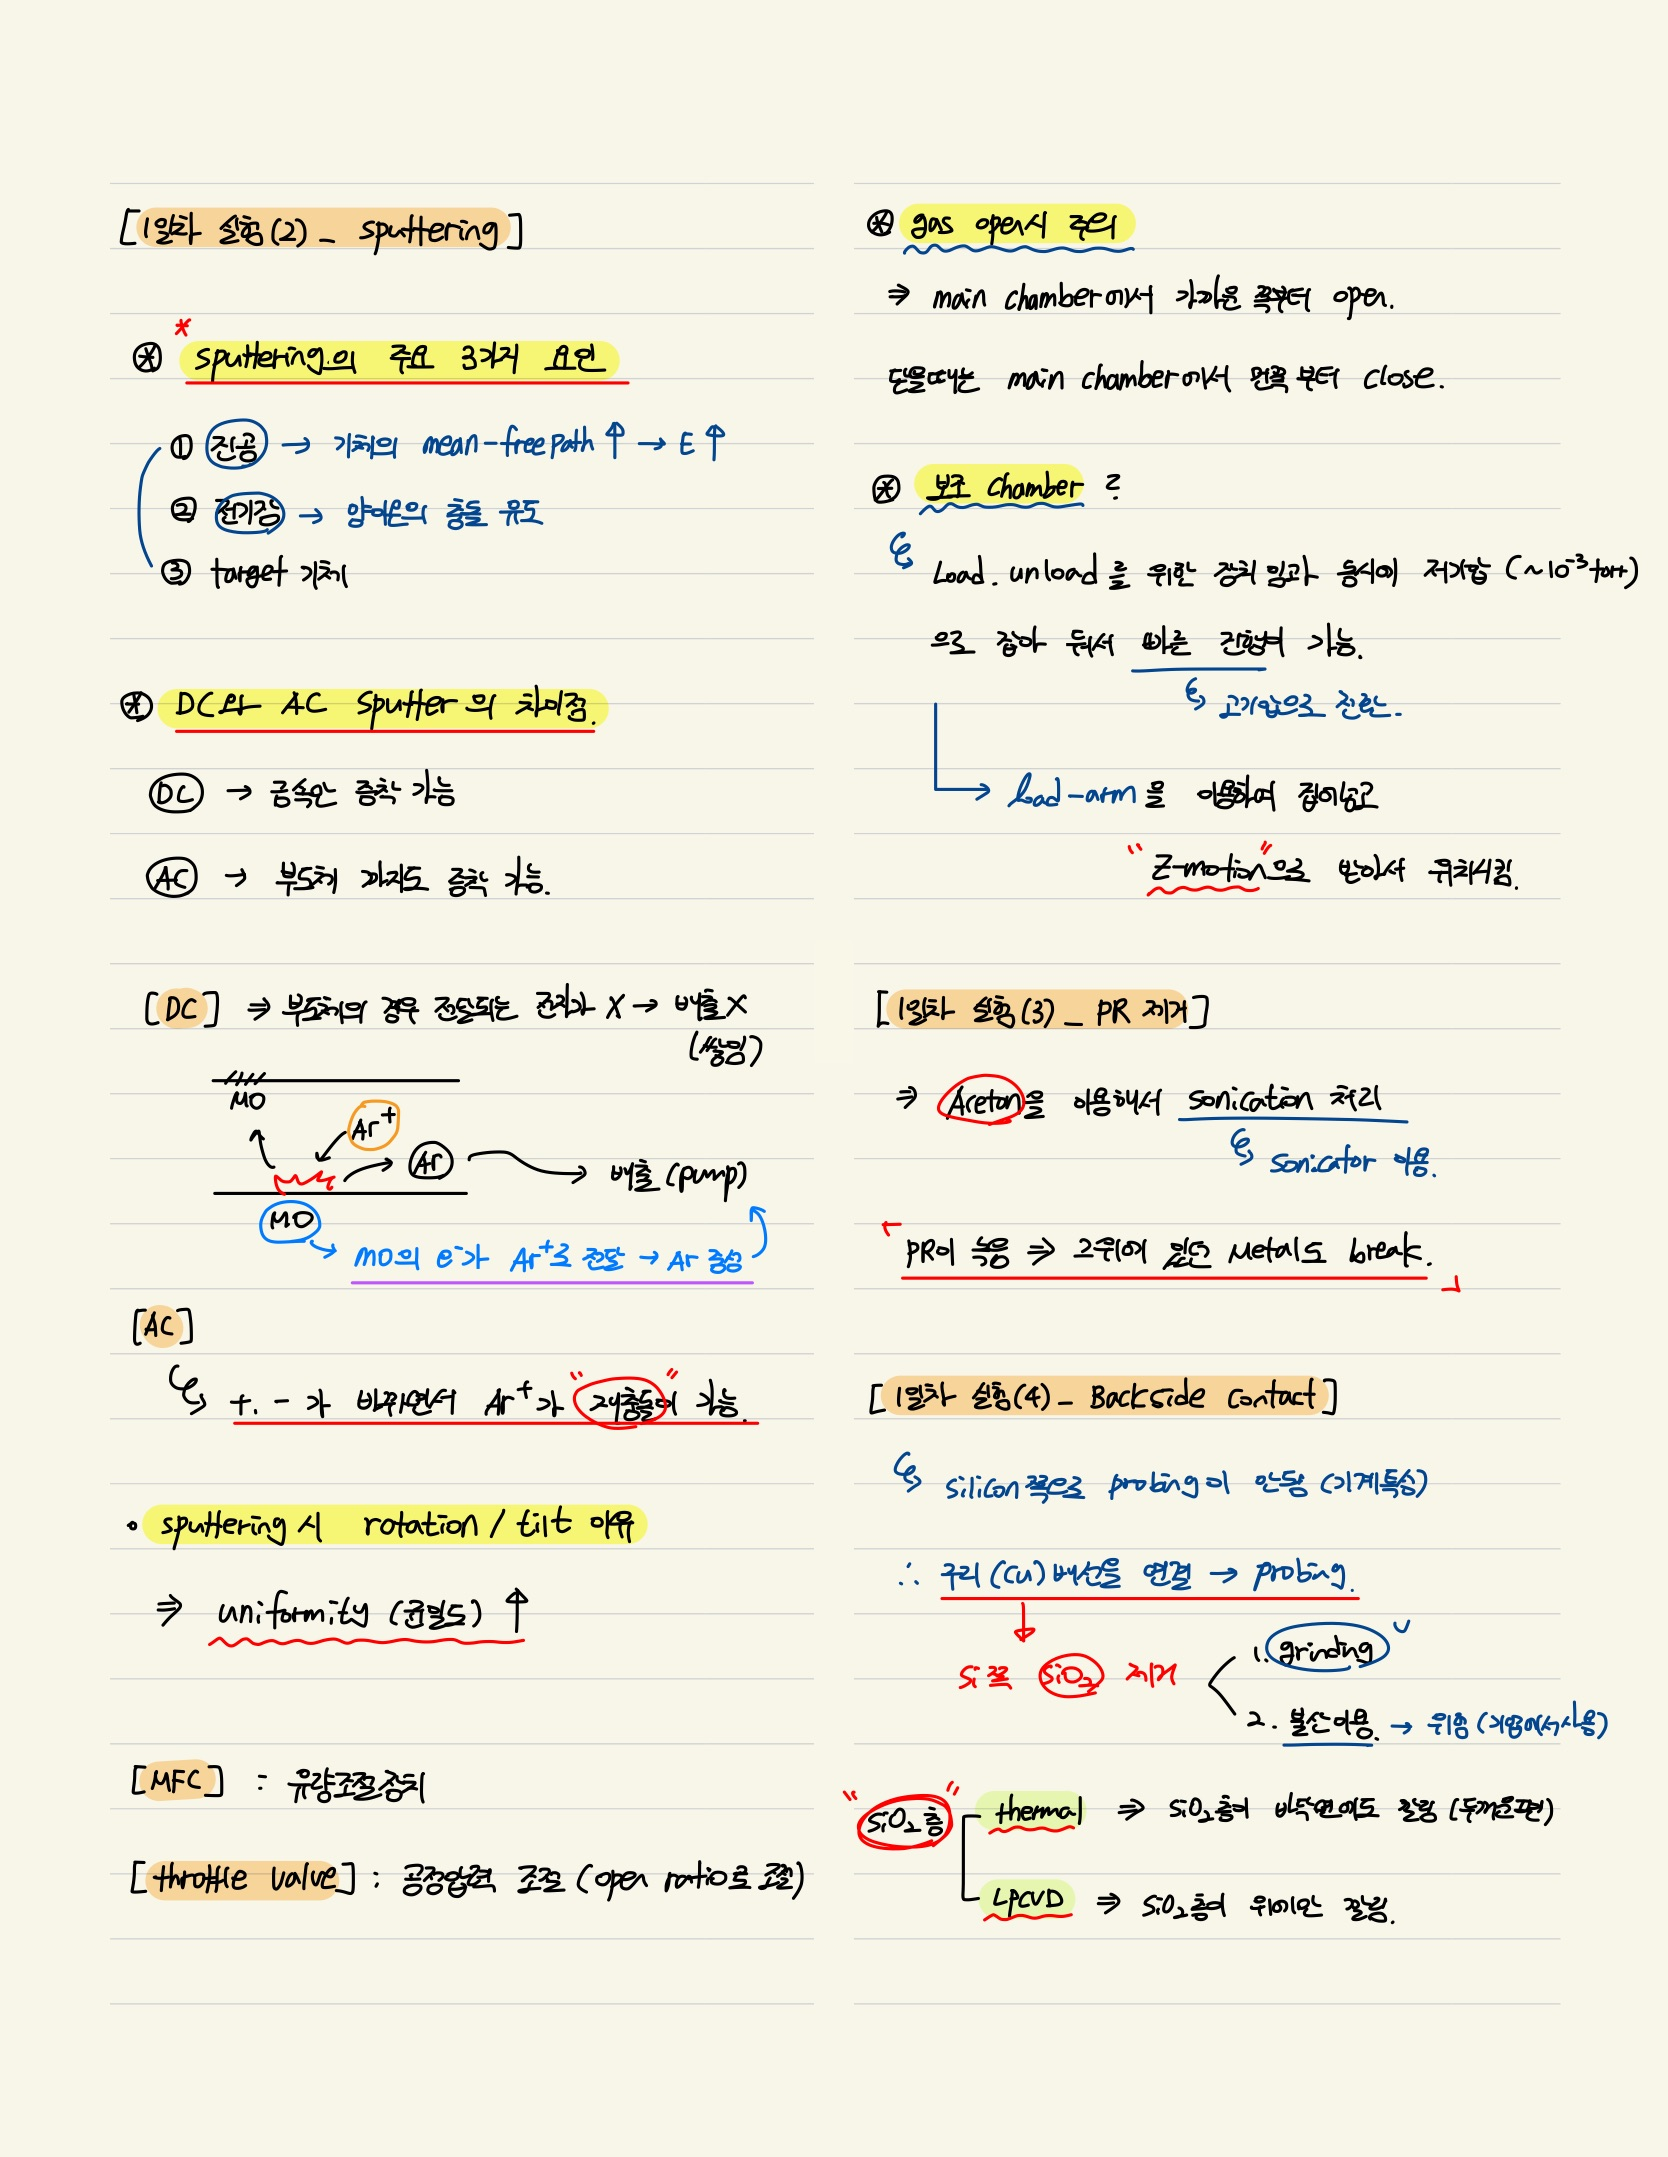 [1일차 실험(2) _ sputtering]
* sputtering의 주요 3가지 요인
① 진공 → 기체의 mean-free path ↑ → E ↑
② 전기장 → 양이온의 충돌 유도
③ target 기체
DC와 AC sputter의 차이점.
DC → 금속만 증착 가능
AC → 부도체 까지도 증착 가능.
[DC] ⇒ 부도체의 경우 전달되는 전자가 X → 배출 X
(쌓임)
MO
Ar⁺
Ar → 배출 (pump)
MO
MO의 e⁻가 Ar⁺로 전달 → Ar 중성
[AC]
+, - 가 바뀌면서 Ar⁺가 "재충돌"이 가능.
• sputtering 시 rotation / tilt 이유
⇒ uniformity (균일도) ↑
[MFC] : 유량조절장치
[throttle valve] : 공정압력 조절 (open ratio로 조절)
gas open시 주의
⇒ main chamber에서 가까운 쪽부터 open.
닫을때는 main chamber에서 먼쪽 부터 close.
보조 chamber ?
Load. unload 를 위한 장치 임과 동시에 저기압 (~10⁻³torr)
으로 잡아 둬서 빠른 진행이 가능.
고기압으로 전환.
load-arm 을 이용하여 집어넣고
"Z-motion"으로 받아서 위치시킴.
[1일차 실험(3) _ PR 제거]
⇒ Aceton을 이용해서 sonication 처리
sonicator 이용.
「PR이 녹음 ⇒ 그위에 있던 Metal도 break.」
[1일차 실험(4) _ Backside Contact]
silicon 쪽으로 probing이 안됨 (기계특성)
∴ 구리(Cu) 배선을 연결 → probing.
Si 쪽 SiO₂ 제거
1. grinding
2. 불산이용. → 위험 (기업에서 사용)
"SiO₂층"
thermal ⇒ SiO₂층이 바닥면에도 깔림 (두꺼운편)
LPCVD ⇒ SiO₂층이 위에만 깔림.